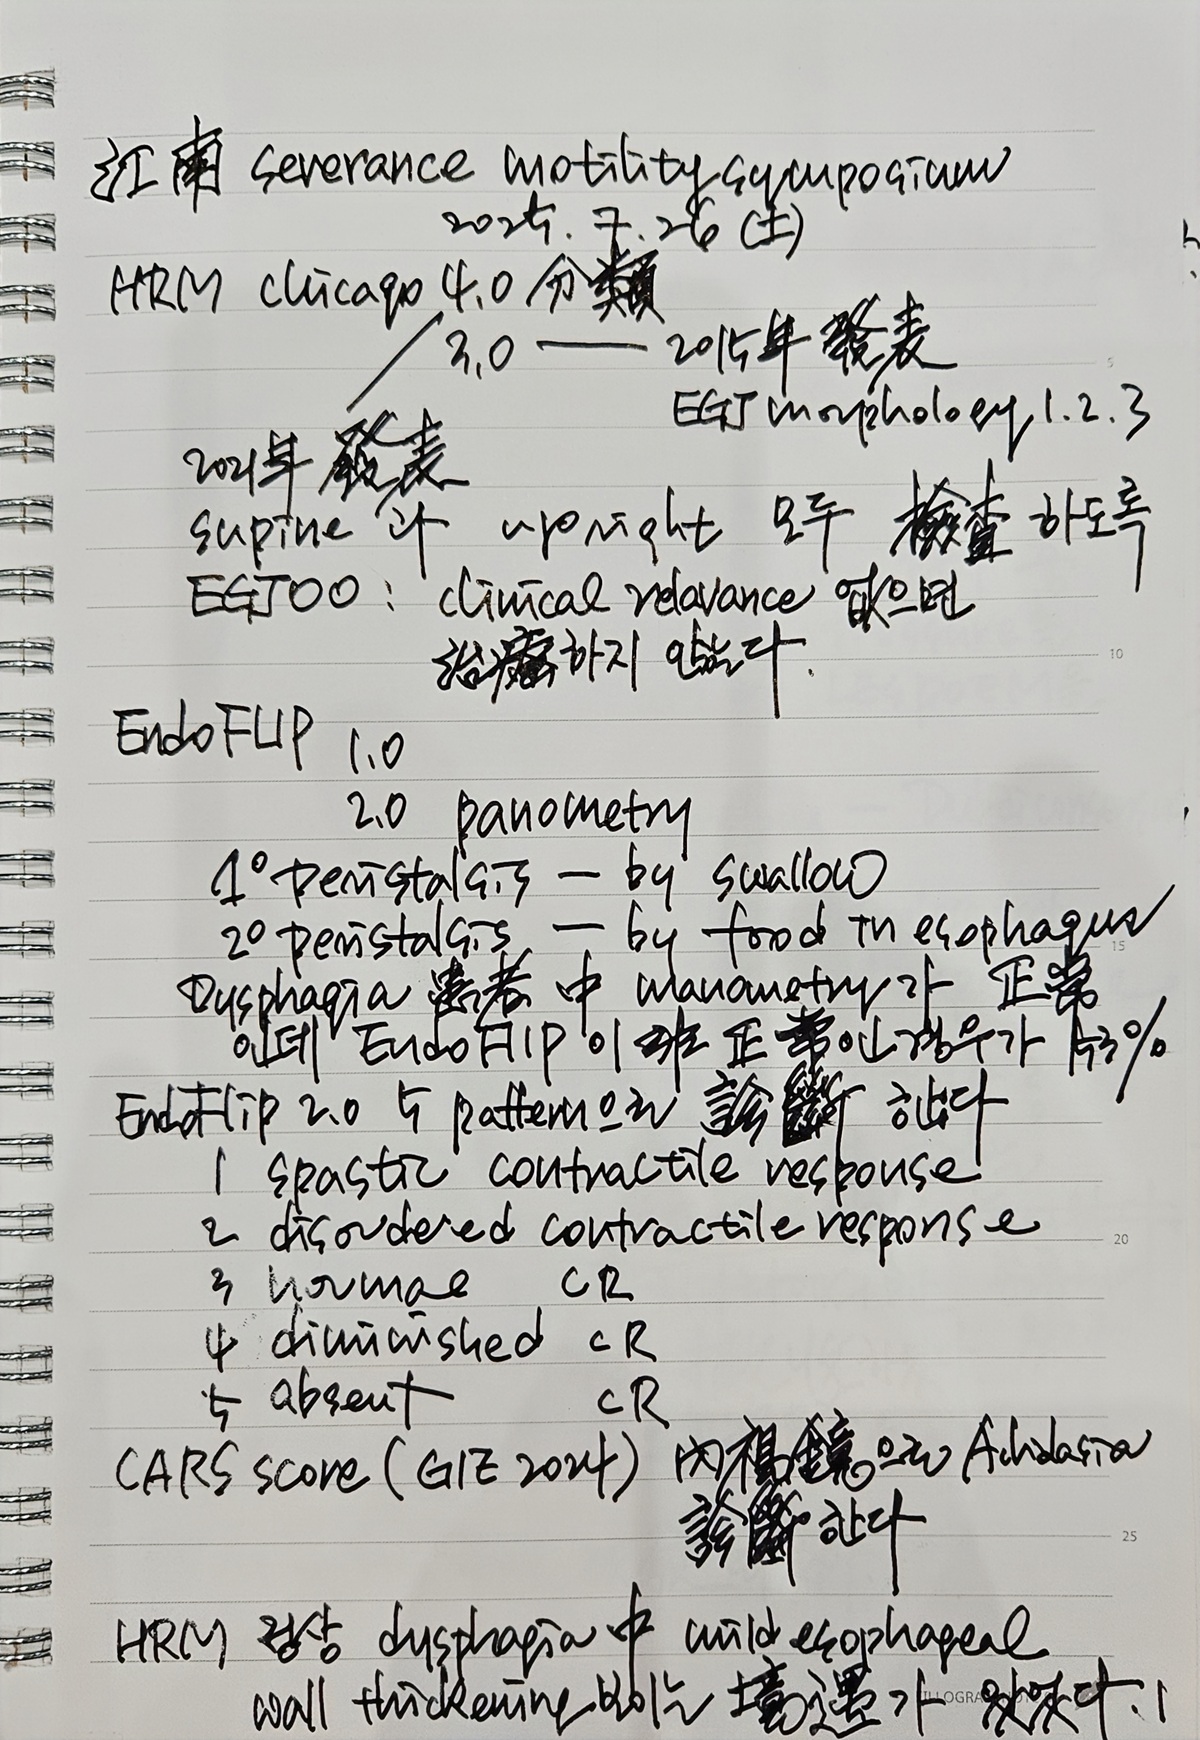 江南 severance motility symposium
2025. 7. 26 (土)
HRM chicago 4.0 分類
3.0 — 2015年 發表
EGJ morphology 1.2.3
2021年 發表
supine 과 upright 모두 檢査 하도록
EGJOO : clinical relavance 없으면
治療하지 않는다.
EndoFLIP 1.0
2.0 panometry
1° peristalsis — by swallow
2° peristalsis — by food in esophagus
Dysphagia 患者 中 manometry가 正常
인데 EndoFLIP이 非正常인 경우가 53%
EndoFlip 2.0 5 pattern으로 診斷 한다
1 spastic contractile response
2 disordered contractile response
3 normal CR
4 diminished CR
5 absent CR
CARS score (GIE 2024) 內視鏡으로 Achalasia
診斷 한다
HRM 정상 dysphagia 中 mild esophageal
wall thickening 보이는 境遇가 있었다.!